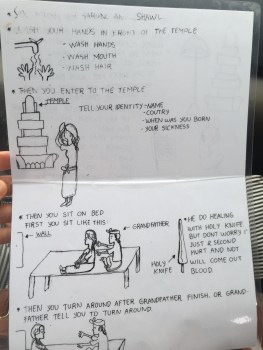 SHAWL
YOUR HANDS IN FRONT OF THE TEMPLE
- WASH HANDS
- WASH MOUTH
- WASH HAIR
• THEN YOU ENTER TO THE TEMPLE
TEMPLE
TELL YOUR IDENTITY -NAME
-COUTRY
-WHEN WAS YOU BORN
-YOUR SICKNESS
• THEN YOU SIT ON BED
FIRST YOU SIT LIKE THIS:
WALL
GRANDFATHER
• HE DO HEALING
WITH HOLY KNIFE
BUT DONT WORRY IT
JUST 2 SECOND
HURT AND NOT
WILL COME OUT
BLOOD.
HOLY
KNIFE
• THEN YOU TURN AROUND AFTER GRANDFATHER FINISH. OR GRAND-
FATHER TELL YOU TO TURN AROUND